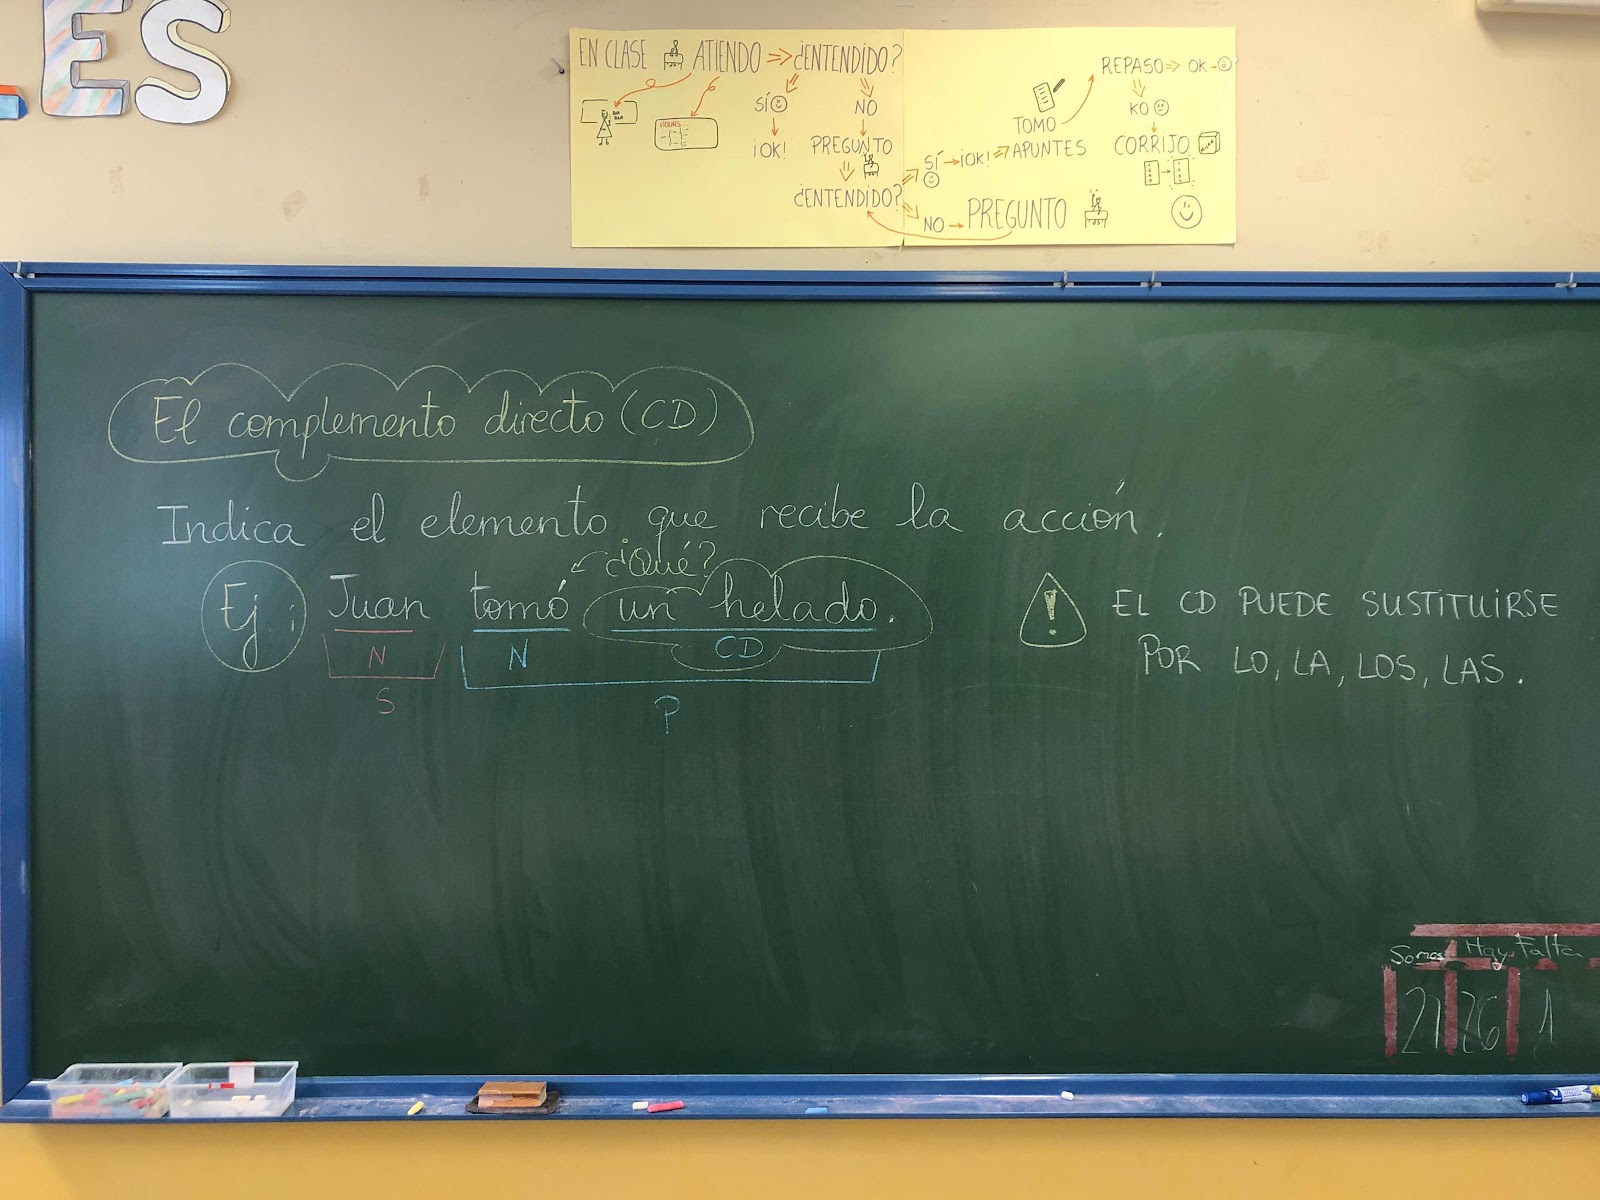 ES
EN CLASE ATIENDO ⇒ ¿ENTENDIDO?
SÍ NO
¡OK! PREGUNTO
¿ENTENDIDO?
SÍ → ¡OK! ⇒ TOMO APUNTES
NO → PREGUNTO
REPASO ⇒ OK
KO
CORRIJO
VIERNES
El complemento directo (CD)
Indica el elemento que recibe la acción.
¿Qué?
Ej: Juan tomó un helado.
N N CD
S P
! EL CD PUEDE SUSTITUIRSE
POR LO, LA, LOS, LAS.
Somos Hay Falta
27 26 1